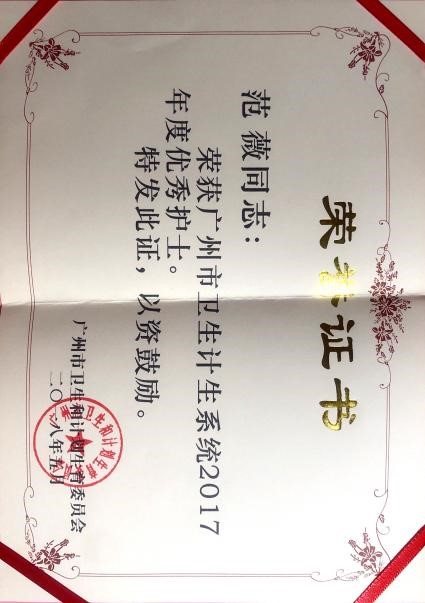 荣誉证书
范薇同志：
荣获广州市卫生计生系统2017
年度优秀护士。
特发此证，以资鼓励。
广州市卫生和计划生育委员会
二〇一八年五月